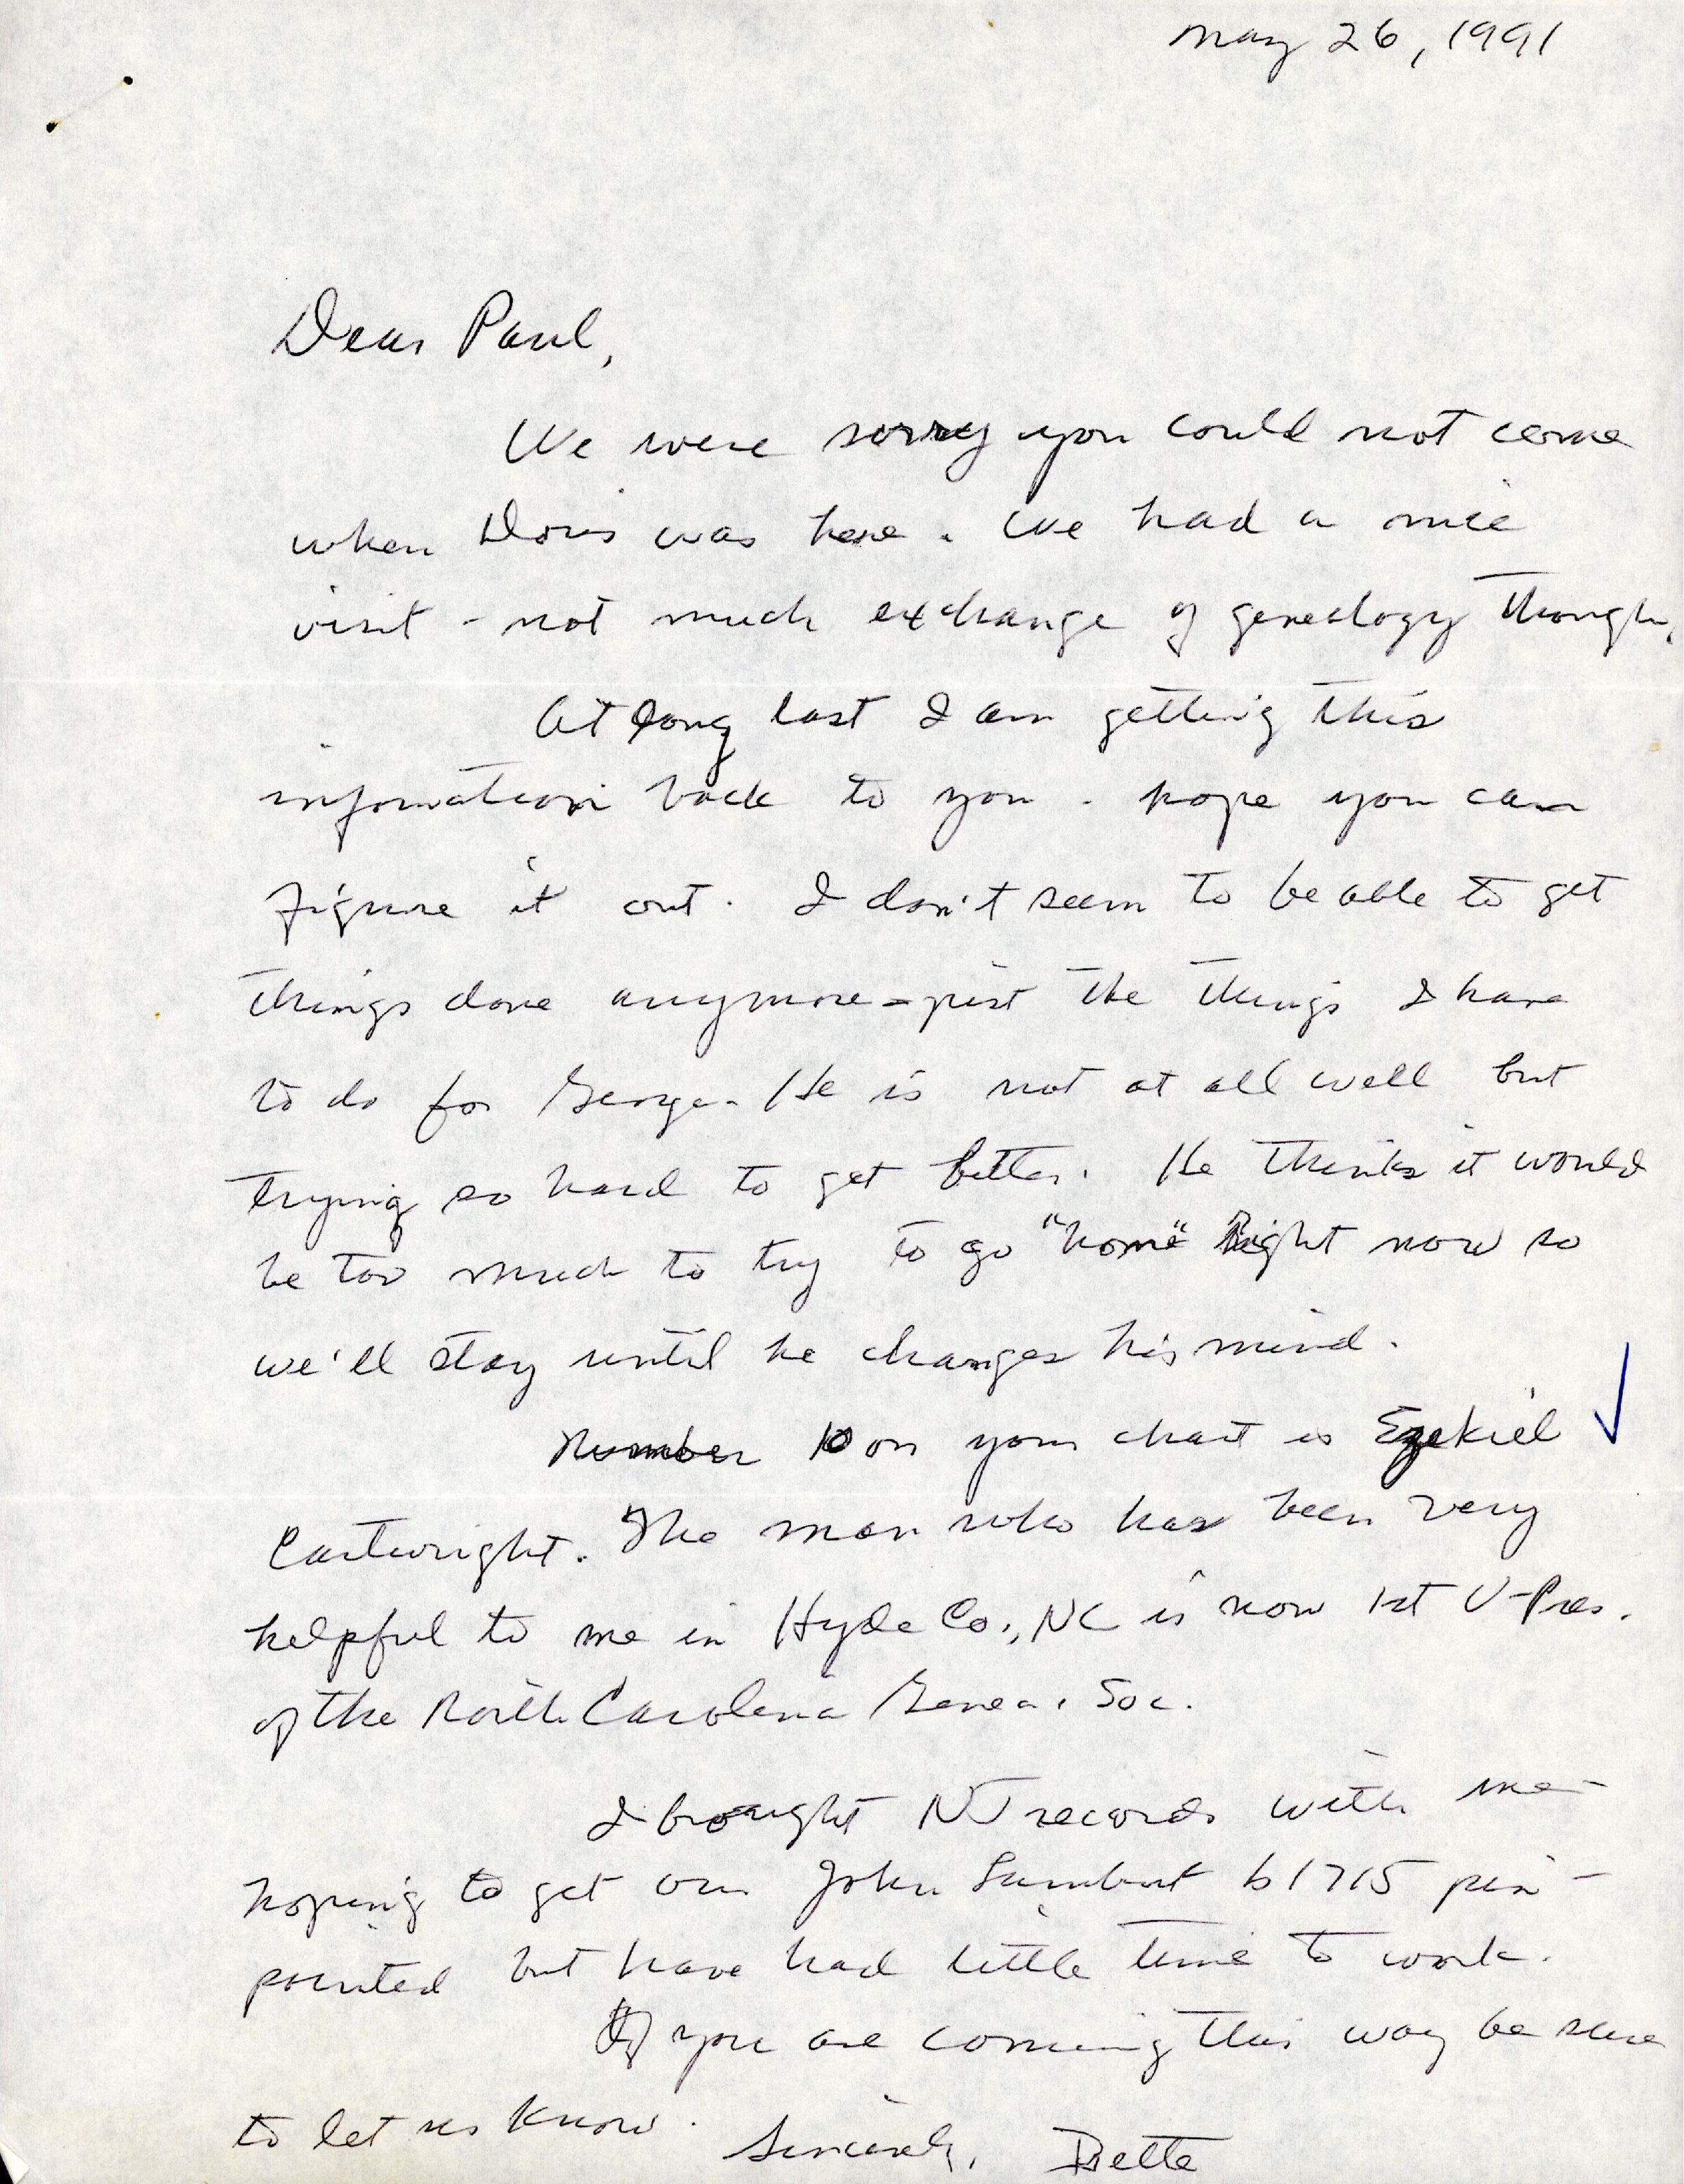 May 26, 1991
Dear Paul,
We were sorry you could not come
when Doris was here. We had a nice
visit - not much exchange of genealogy though.
At long last I am getting this
information back to you - hope you can
figure it out. I don't seem to be able to get
things done anymore - just the things I have
to do for George. He is not at all well but
trying so hard to get better. He thinks it would
be too much to try to go "home" right now so
we'll stay until he changes his mind.
Number 10 on your chart is Ezekiel
Cartwright. The man who has been very
helpful to me in Hyde Co., NC is now 1st V-Pres.
of the North Carolina Genea. Soc.
I brought NJ records with me -
hoping to get our John b 1715 pin-
pointed but have had little time to work.
If you are coming this way be sure
to let us know. Sincerely, Bette